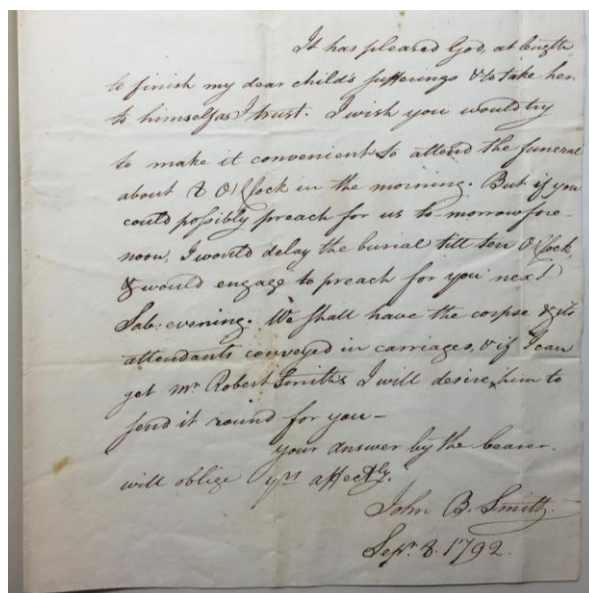 It has pleased God, at length
to finish my dear child's sufferings & to take her
to himself as I trust. I wish you would try
to make it convenient to attend the funeral
about 8 O'Clock in the morning. But if you
could possibly preach for us to morrow fore-
noon, I would delay the burial till ten O'Clock,
& would engage to preach for you next
Sab: evening. We shall have the corpse & its
attendants conveyed in carriages, & if I can
get Mr. Robert Smith's I will desire him to
send it round for you—
your answer by the bearer.
will oblige yrs affectly.
John B. Smith.
Sepr. 8. 1792.